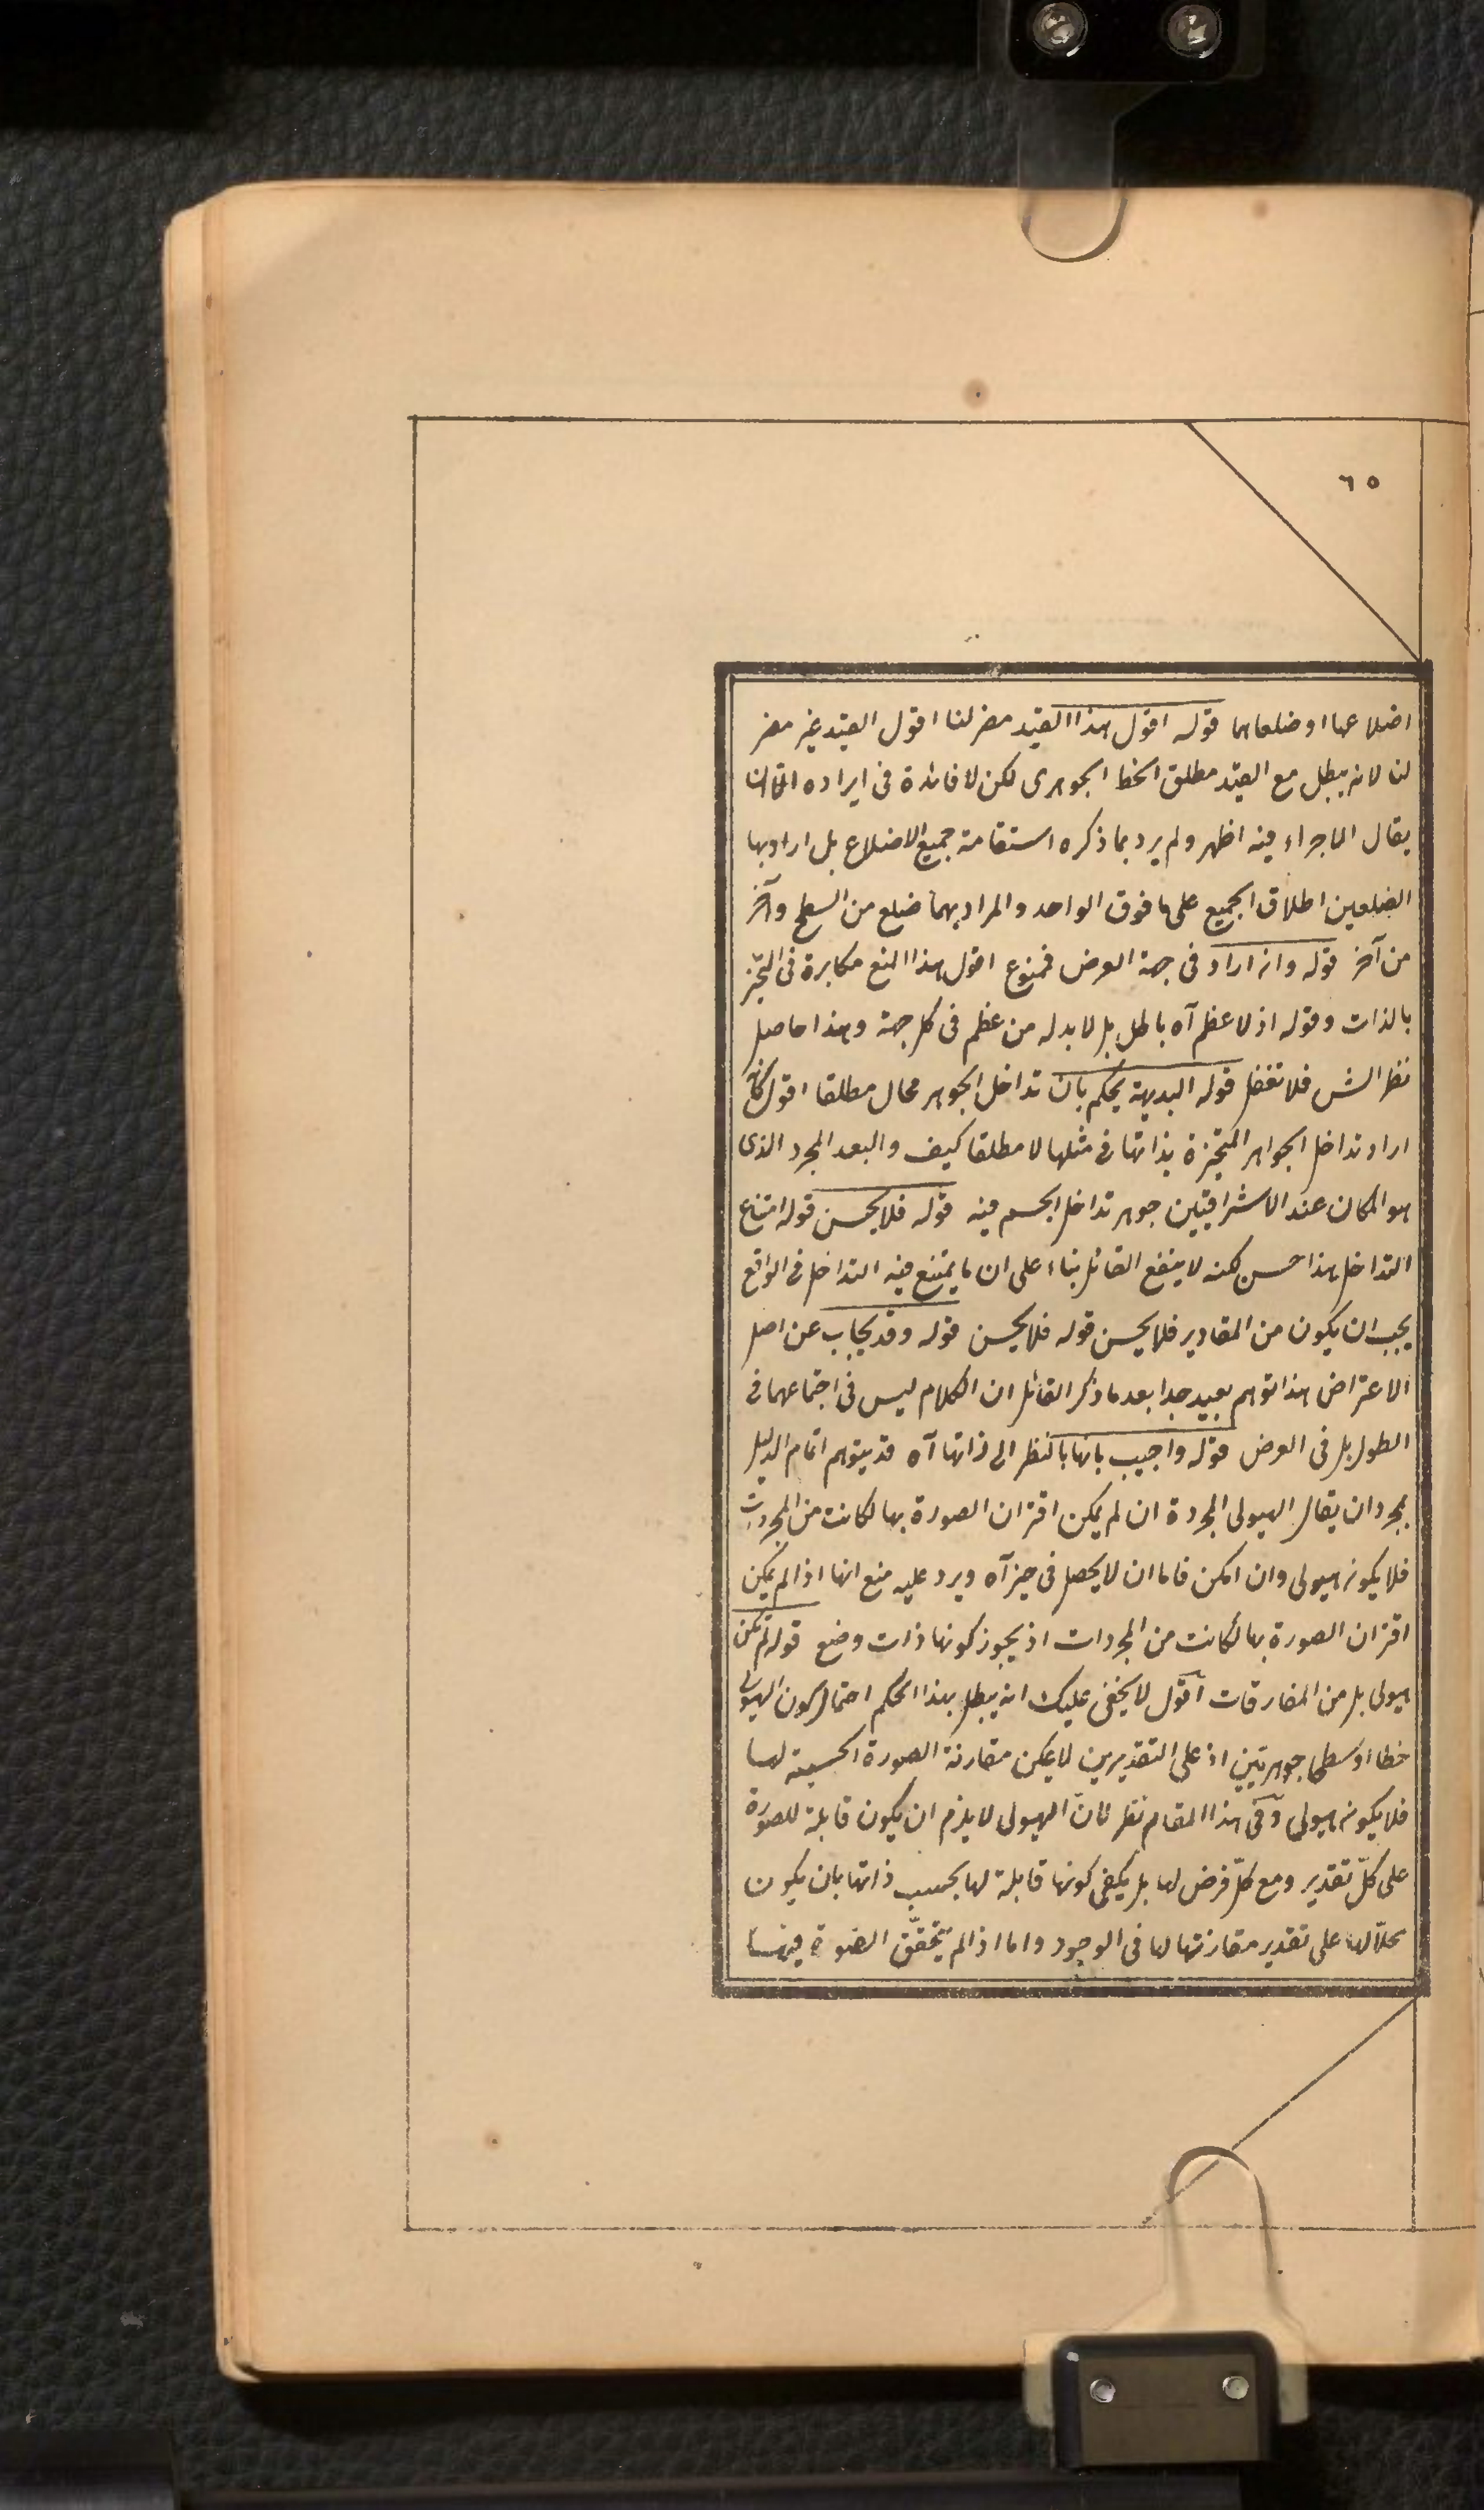 ٦٥
اضلاعها او ضلعاهما قوله اقول هذا القيد مضر لنا اقول القيد غير مضر
لنا لانه يبطل مع القيد مطلق الخط الجوهرى لكن لا فائدة فى ايراده الا ان
يقال الاجراء فيه اظهر ولم يرد بما ذكره استقامة جميع الاضلاع بل اراد بها
الضلعين اطلاق الجميع على ما فوق الواحد والمراد بهما ضلع من السطح وآخر
من آخر قوله وانه اراد فى جهة العرض فممنوع اقول هذا المنع مكابرة فى التحيز
بالذات وقوله اذ لا عظم آه باطل بل لا بد له من عظم فى كل جهة وهذا حاصل
نظر الش فلا تغفل قوله البديهة يحكم بان تداخل الجوهر محال مطلقا اقول كانه
اراد تداخل الجواهر المتحيزة بذاتها فى مثلها لا مطلقا كيف والبعد المجرد الذى
هو المكان عند الاشراقيين جوهر تداخل الجسم فيه قوله فلا يحسن قوله امتناع
التداخل هذا حسن لكنه لا ينفع القائل بناء على ان ما يمتنع فيه التداخل فى الواقع
يجب ان يكون من المقادير فلا يحسن قوله فلا يحسن قوله وقد يجاب عن اصل
الاعتراض هذا توهم بعيد جدا بعد ما ذكر القائل ان الكلام ليس فى اجتماعهما فى
الطول بل فى العرض قوله واجيب بانها بالنظر الى ذاتها آه قد يتوهم اتمام الدليل
بمجرد ان يقال الهيولى المجردة ان لم يمكن اقتران الصورة بها لكانت من المجردات
فلا يكونه هيولى وان امكن فاما ان لا يحصل فى حيز آه ويرد عليه منع انها اذا لم يمكن
اقتران الصورة بها لكانت من المجردات اذ يجوز كونها ذات وضع قوله لم تكن
هيولى بل من المفارقات اقول لا يخفى عليك انه يبطل بهذا الحكم احتمال كون الهيولى
خطا او سطحا جوهريين اذ على التقديرين لا يمكن مقارنة الصورة الجسمية لها
فلا يكونه هيولى وفى هذا المقام نظر لان الهيولى لا يلزم ان يكون قابلة للصورة
على كلّ تقدير ومع كلّ فرض لها بل يكفى كونها قابلة لها بحسب ذاتها بان يكون
محلّا لها على تقدير مقارنتها لها فى الوجود واما اذا لم يتحقّق الصورة فيها